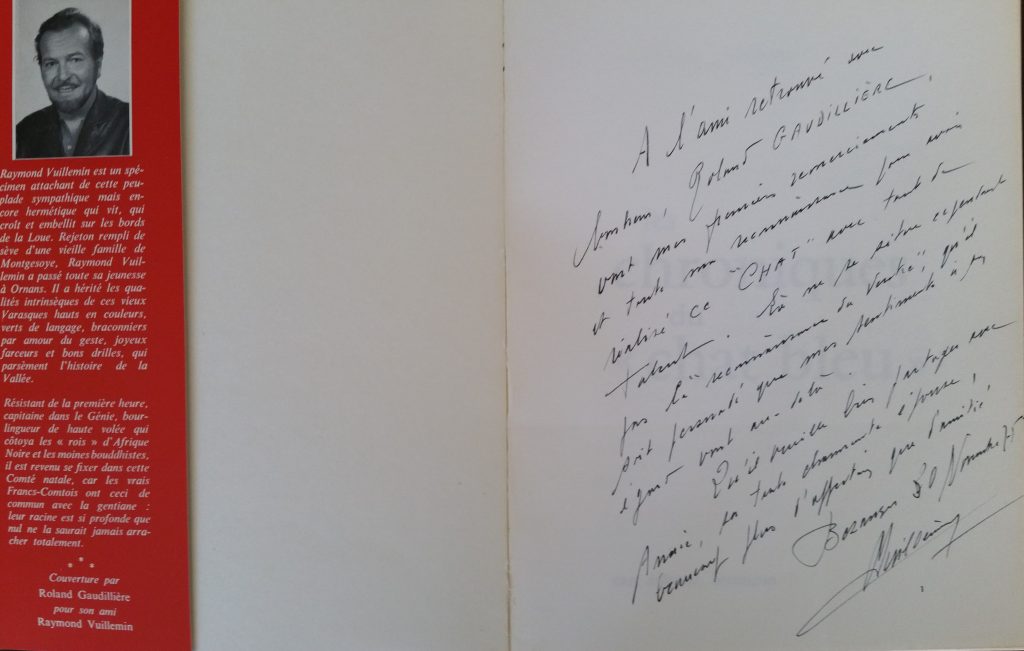 Raymond Vuillemin est un spé-
cimen attachant de cette peu-
plade sympathique mais en-
core hermétique qui vit, qui
croît et embellit sur les bords
de la Loue. Rejeton rempli de
sève d'une vieille famille de
Montgesoye, Raymond Vuil-
lemin a passé toute sa jeunesse
à Ornans. Il a hérité les qua-
lités intrinsèques de ces vieux
Varasques hauts en couleurs,
verts de langage, braconniers
par amour du geste, joyeux
farceurs et bons drilles, qui
parsèment l'histoire de la
Vallée.
Résistant de la première heure,
capitaine dans le Génie, bour-
lingueur de haute volée qui
côtoya les « rois » d'Afrique
Noire et les moines bouddhistes,
il est revenu se fixer dans cette
Comté natale, car les vrais
Francs-Comtois ont ceci de
commun avec la gentiane :
leur racine est si profonde que
nul ne la saurait jamais arra-
cher totalement.
* * *
Couverture par
Roland Gaudillière
pour son ami
Raymond Vuillemin
A l'ami retrouvé avec
bonheur, Roland GAUDILLIÈRE,
vont mes premiers remerciements
et toute ma reconnaissance pour avoir
réalisé ce "CHAT" avec tant de
talent. Là ne se situe cependant
pas la "reconnaissance du ventre", qu'il
soit persuadé que mes sentiments à son
égard vont au-delà.
Qu'il veuille bien partager avec
Annie, sa toute charmante épouse,
beaucoup plus d'affection que d'amitié
30 Novembre 75
Vuillemin
chroniques
du
chat bleu